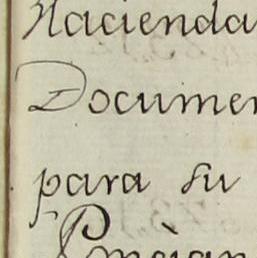 Hacienda
Documen
para su